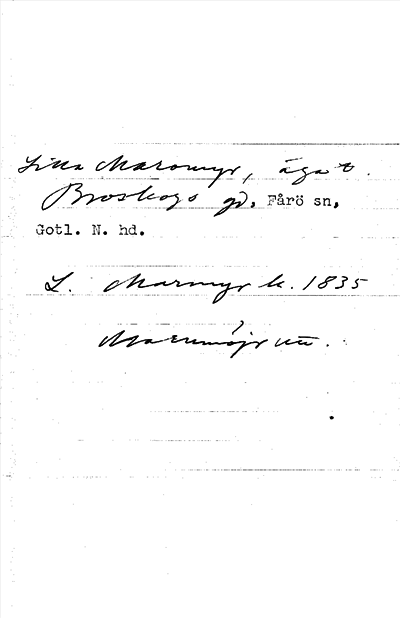 Lilla Maromyr, ägat.
Broskogs gd, Fårö sn,
Gotl. N. hd.
L. Marmyr k. 1835